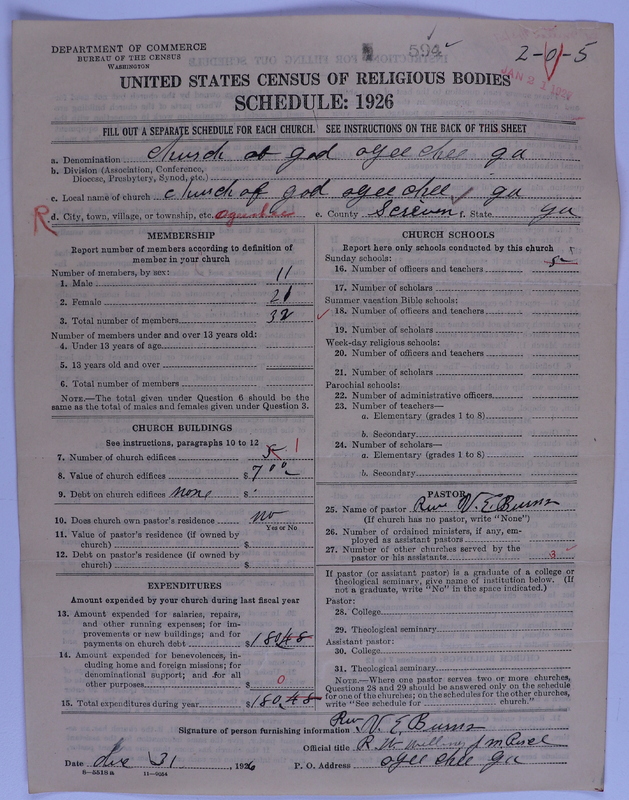 DEPARTMENT OF COMMERCE
BUREAU OF THE CENSUS
WASHINGTON
594
2-0-5
JAN 21 192
UNITED STATES CENSUS OF RELIGIOUS BODIES
SCHEDULE: 1926
FILL OUT A SEPARATE SCHEDULE FOR EACH CHURCH. SEE INSTRUCTIONS ON THE BACK OF THIS SHEET
a. Denomination church of god ogeechee ga
b. Division (Association, Conference, Diocese, Presbytery, Synod, etc.)
c. Local name of church church of god ogeechee ga
R d. City, town, village, or township, etc. ogeechee e. County Screven f. State ga
MEMBERSHIP
Report number of members according to definition of member in your church
Number of members, by sex:
1. Male 11
2. Female 21
3. Total number of members 32
Number of members under and over 13 years old:
4. Under 13 years of age
5. 13 years old and over
6. Total number of members
NOTE.—The total given under Question 6 should be the same as the total of males and females given under Question 3.
CHURCH BUILDINGS
See instructions, paragraphs 10 to 12
7. Number of church edifices 1
8. Value of church edifices $ 700
9. Debt on church edifices none $
10. Does church own pastor's residence no
Yes or No
11. Value of pastor's residence (if owned by church) $
12. Debt on pastor's residence (if owned by church) $
EXPENDITURES
Amount expended by your church during last fiscal year
13. Amount expended for salaries, repairs, and other running expenses; for improvements or new buildings; and for payments on church debt $ 180.48
14. Amount expended for benevolences, including home and foreign missions; for denominational support; and for all other purposes $ 0
15. Total expenditures during year $ 180.48
CHURCH SCHOOLS
Report here only schools conducted by this church
Sunday schools:
16. Number of officers and teachers 5
17. Number of scholars
Summer vacation Bible schools:
18. Number of officers and teachers
19. Number of scholars
Week-day religious schools:
20. Number of officers and teachers
21. Number of scholars
Parochial schools:
22. Number of administrative officers
23. Number of teachers—
a. Elementary (grades 1 to 8)
b. Secondary
24. Number of scholars—
a. Elementary (grades 1 to 8)
b. Secondary
PASTOR
25. Name of pastor Rev V. E. Burns
(If church has no pastor, write "None")
26. Number of ordained ministers, if any, employed as assistant pastors
27. Number of other churches served by the pastor or his assistants 3
If pastor (or assistant pastor) is a graduate of a college or theological seminary, give name of institution below. (If not a graduate, write "No" in the space indicated.)
Pastor:
28. College
29. Theological seminary
Assistant pastor:
30. College
31. Theological seminary
NOTE.—Where one pastor serves two or more churches, Questions 28 and 29 should be answered only on the schedule for one of the churches; on the schedules for the other churches, write "See schedule for church."
Signature of person furnishing information Rev V. E. Burns
Official title
Date dec 31, 1926 P. O. Address ogeechee ga
8—5518a 11—9054